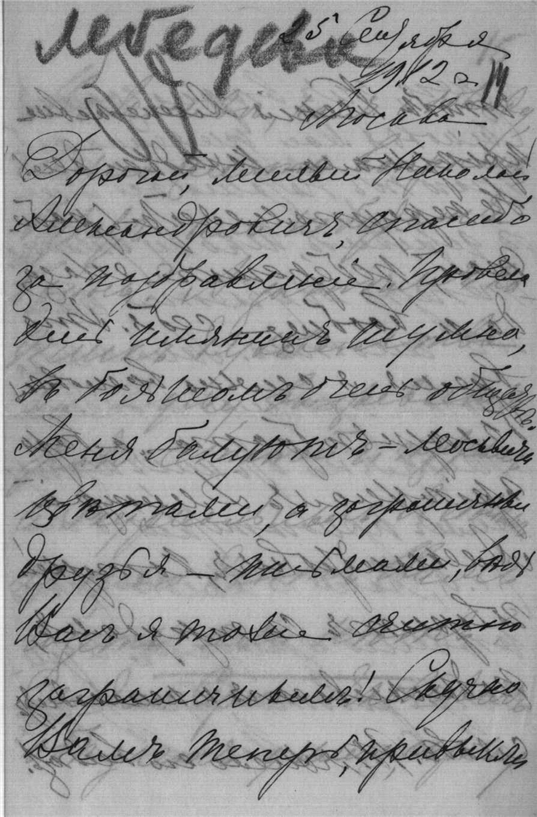 Лебедева
25 Сентября
1912 г.
Москва
Дорогой, милый Николай
Александровичъ, спасибо
за поздравленіе. Провела
день имянинъ шумно,
въ большомъ очень
Меня балуютъ – москвичи
цвѣтами, а заграничные
друзья – письмами,
Васъ я тоже считаю
заграничнымъ! Скучно
Вамъ теперь, привыкли